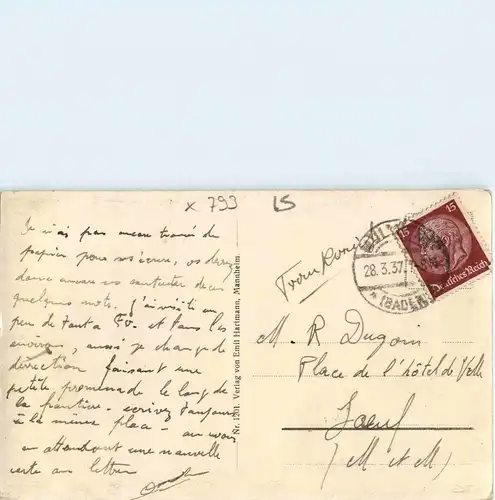 x 799
15
Je n'ai pas encore trouvé de
papier pour vous écrire, vous devez
donc encore vous contenter de ces
quelques mots. J'ai visité un
peu de tout à Fb. et dans les
environs, aussi je change de
direction faisant une
petite promenade le long de
la frontière. écrivez toujours
à la même place - au revoir
en attendant une nouvelle
carte ou lettre
Nr. 1291 Verlag von Emil Hartmann, Mannheim
28.3.37
(BADEN)
15
15
Deutsches Reich
M. R Dugoin
Place de l'hôtel de Ville
Joeuf
(M et M)